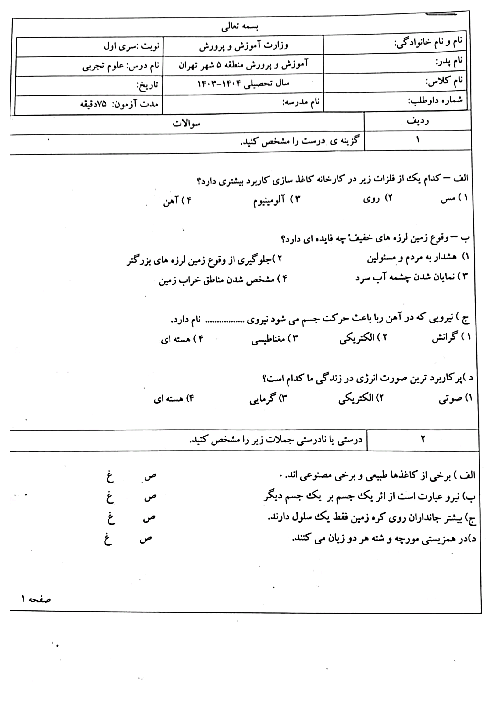 بسمه تعالی
نام و نام خانوادگی: وزارت آموزش و پرورش نوبت :سری اول
نام پدر: آموزش و پرورش منطقه ۵ شهر تهران نام درس: علوم تجربی
نام کلاس: سال تحصیلی ۱۴۰۴-۱۴۰۳ تاریخ:
شماره داوطلب: نام مدرسه: مدت آزمون: ۷۵دقیقه
ردیف سوالات
۱ گزینه ی درست را مشخص کنید.
الف – کدام یک از فلزات زیر در کارخانه کاغذ سازی کاربرد بیشتری دارد؟
۱) مس ۲) روی ۳) آلومینیوم ۴) آهن
ب – وقوع زمین لرزه های خفیف چه فایده ای دارد؟
۱) هشدار به مردم و مسئولین ۲)جلوگیری از وقوع زمین لرزه های بزرگتر
۳) نمایان شدن چشمه آب سرد ۴) مشخص شدن مناطق خراب زمین
ج ) نیرویی که در آهن ربا باعث حرکت جسم می شود نیروی ................. نام دارد.
۱) گرانش ۲) الکتریکی ۳) مغناطیسی ۴) هسته ای
د )پر کاربرد ترین صورت انرژی در زندگی ما کدام است؟
۱) صوتی ۲) الکتریکی ۳) گرمایی ۴) هسته ای
۲ درستی یا نادرستی جملات زیر را مشخص کنید.
الف ) برخی از کاغذها طبیعی و برخی مصنوعی اند. ص غ
ب) نیرو عبارت است از اثر یک جسم بر یک جسم دیگر ص غ
ج) بیشتر جانداران روی کره زمین فقط یک سلول دارند. ص غ
د)در همزیستی مورچه و شته هر دو زیان می کنند. ص غ
صفحه ۱